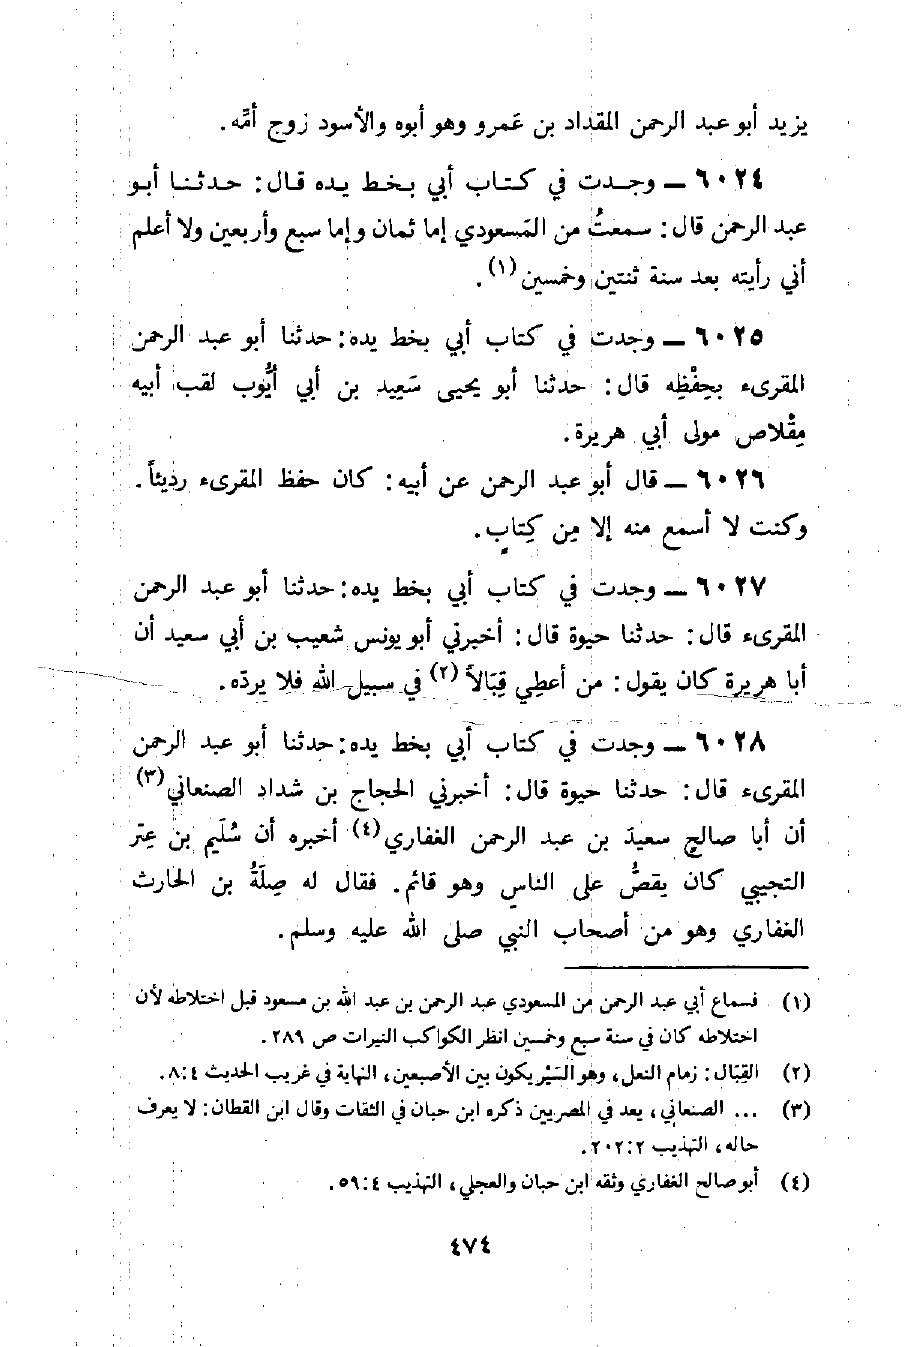 يزيد أبو عبد الرحمن المقداد بن عَمرو وهو أبوه والأسود زوج أمِّه.
٦٠٢٤ ــ وجدت في كتاب أبي بخط يده قال: حدثنا أبو
عبد الرحمن قال: سمعتُ من المَسعودي إما ثمان وإما سبع وأربعين ولا أعلم
أني رأيته بعد سنة ثنتين وخمسين (١).
٦٠٢٥ ــ وجدت في كتاب أبي بخط يده: حدثنا أبو عبد الرحمن
المقرىء بحِفْظِه قال: حدثنا أبو يحيى سَعِيد بن أبي أيُّوب لقب أبيه
مِقْلاص مولى أبي هريرة.
٦٠٢٦ ــ قال أبو عبد الرحمن عن أبيه: كان حفظ المقرىء رديئاً.
وكنت لا أسمع منه إلا مِن كِتابٍ.
٦٠٢٧ ــ وجدت في كتاب أبي بخط يده: حدثنا أبو عبد الرحمن
المقرىء قال: حدثنا حيوة قال: أخبرني أبو يونس شعيب بن أبي سعيد أن
أبا هريرة كان يقول: من أعطِي قِبَالاً (٢) في سبيل الله فلا يردّه.
٦٠٢٨ ــ وجدت في كتاب أبي بخط يده: حدثنا أبو عبد الرحمن
المقرىء قال: حدثنا حيوة قال: أخبرني الحجاج بن شداد الصنعاني (٣)
أن أبا صالحٍ سعيدَ بن عبد الرحمن الغفاري (٤) أخبره أن سُلَيم بن عِتر
التجيبي كان يقصُّ على الناسِ وهو قائم. فقال له صِلَةُ بن الحارث
الغفاري وهو من أصحاب النبي صلى الله عليه وسلم.
(١) فسماع أبي عبد الرحمن من المسعودي عبد الرحمن بن عبد الله بن مسعود قبل اختلاطه لأن
اختلاطه كان في سنة سبع وخمسين انظر الكواكب النيرات ص ٢٨٩.
(٢) القِبَال: زمام النعل، وهو السَيْر يكون بين الأصبعين، النهاية في غريب الحديث ٤:٨.
(٣) ... الصنعاني، يعد في المصريين ذكره ابن حبان في الثقات وقال ابن القطان: لا يعرف
حاله، التهذيب ٢:٢٠٢.
(٤) أبو صالح الغفاري وثقه ابن حبان والعجلي، التهذيب ٤:٥٩.
٤٧٤